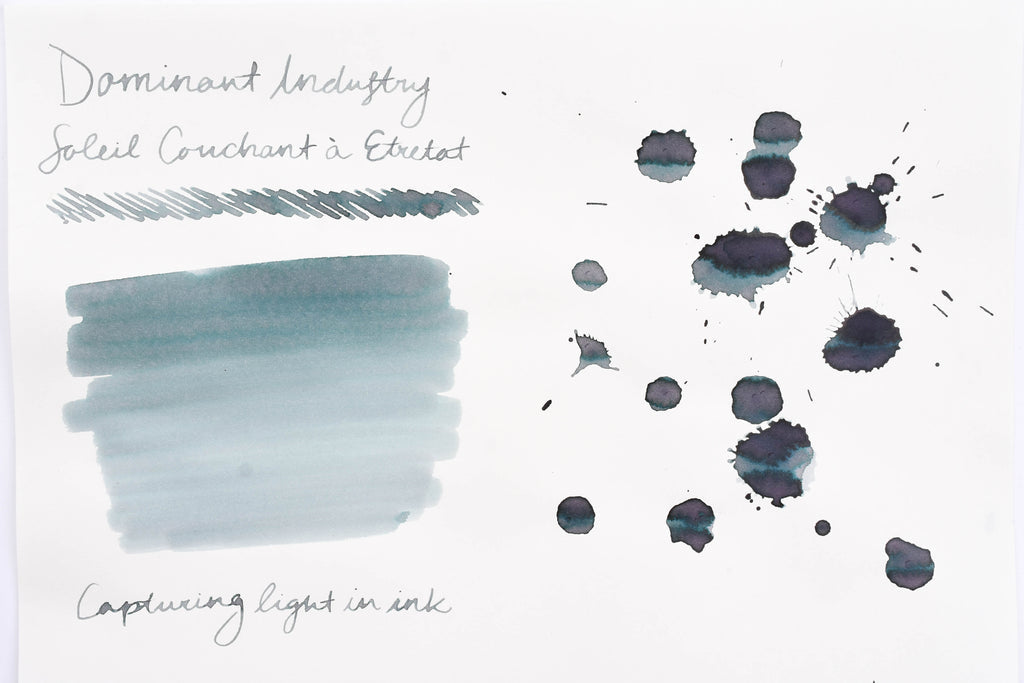 Dominant Industry
Soleil Couchant à Etretat
Capturing light in ink